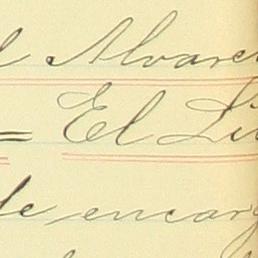 l Alvare
= El Li
de encarg